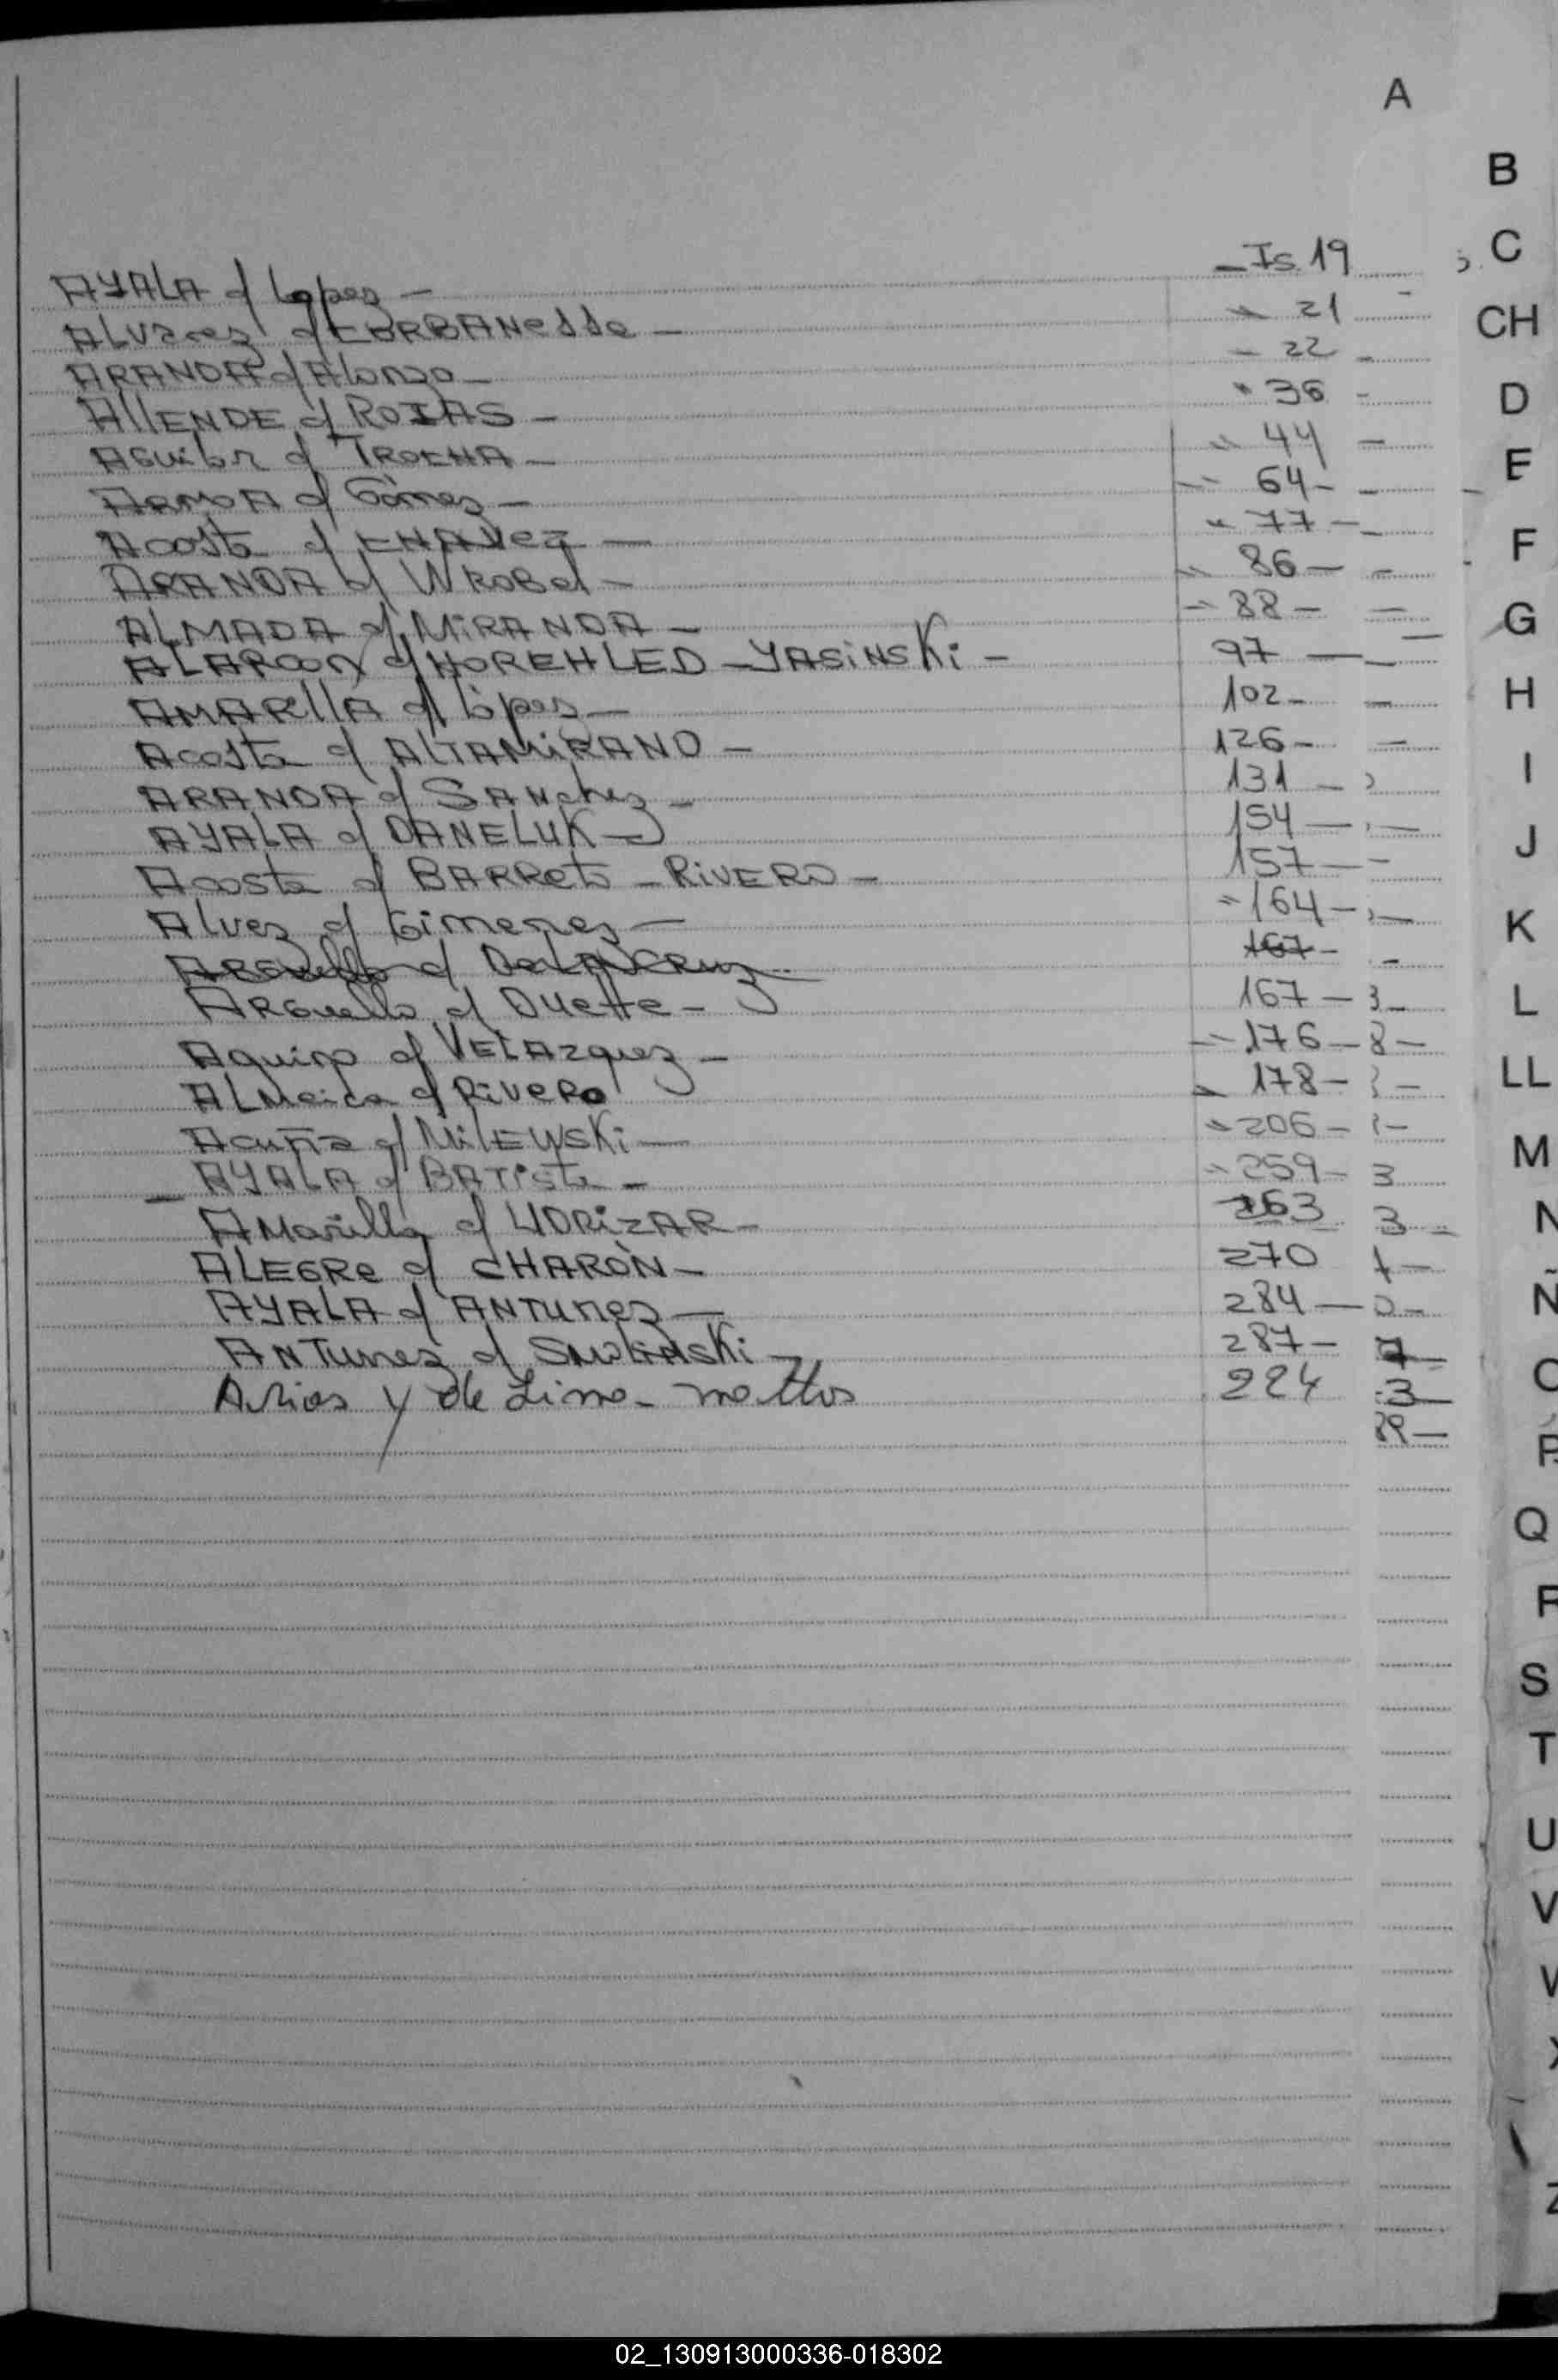 A
B
C
CH
D
E
F
G
H
I
J
K
L
LL
M
N
Ñ
O
P
Q
R
S
T
U
V
Z
AYALA c/ Lopez – – Is. 19
ALVarez c/ – " 21
ARANDA c/ Alonzo – – 22
AllENDE c/ ROJAS – " 36
AGuilar c/ TROCHA – " 44
c/ Gómez – " 64 –
Acosta c/ CHAVez – " 77 –
ARANDA c/ WRoBel – " 86 –
ALMADA c/ MiRANDA – " 88 –
ALARCON c/ HOREHLED – YASiNSKi – 97 –
AMARillA c/ López – 102 –
Acosta c/ AlTAMiRANO – 126 –
ARANDA c/ SANchez – 131 –
AYALA c/ DANELUK – 154 –
Acosta c/ BARReto – RiVERO – 157 –
Alvez c/ Gimenez – " 164 –
ARGuello c/ DeLACRuz 167 –
ARGuello c/ Duette – 167 –
Aquino c/ VELAzquez – " 176 –
ALMeida c/ RiVeRo " 178 –
Acuña c/ MilEWSKi – " 206 –
– AYALA c/ BATista – " 259 –
AMarilla c/ 263
ALEGRe c/ CHARÓN – 270
AYALA c/ ANTunez – 284 –
ANTunez c/ 287 –
Arias y de Lima – mattos 224
02_130913000336-018302